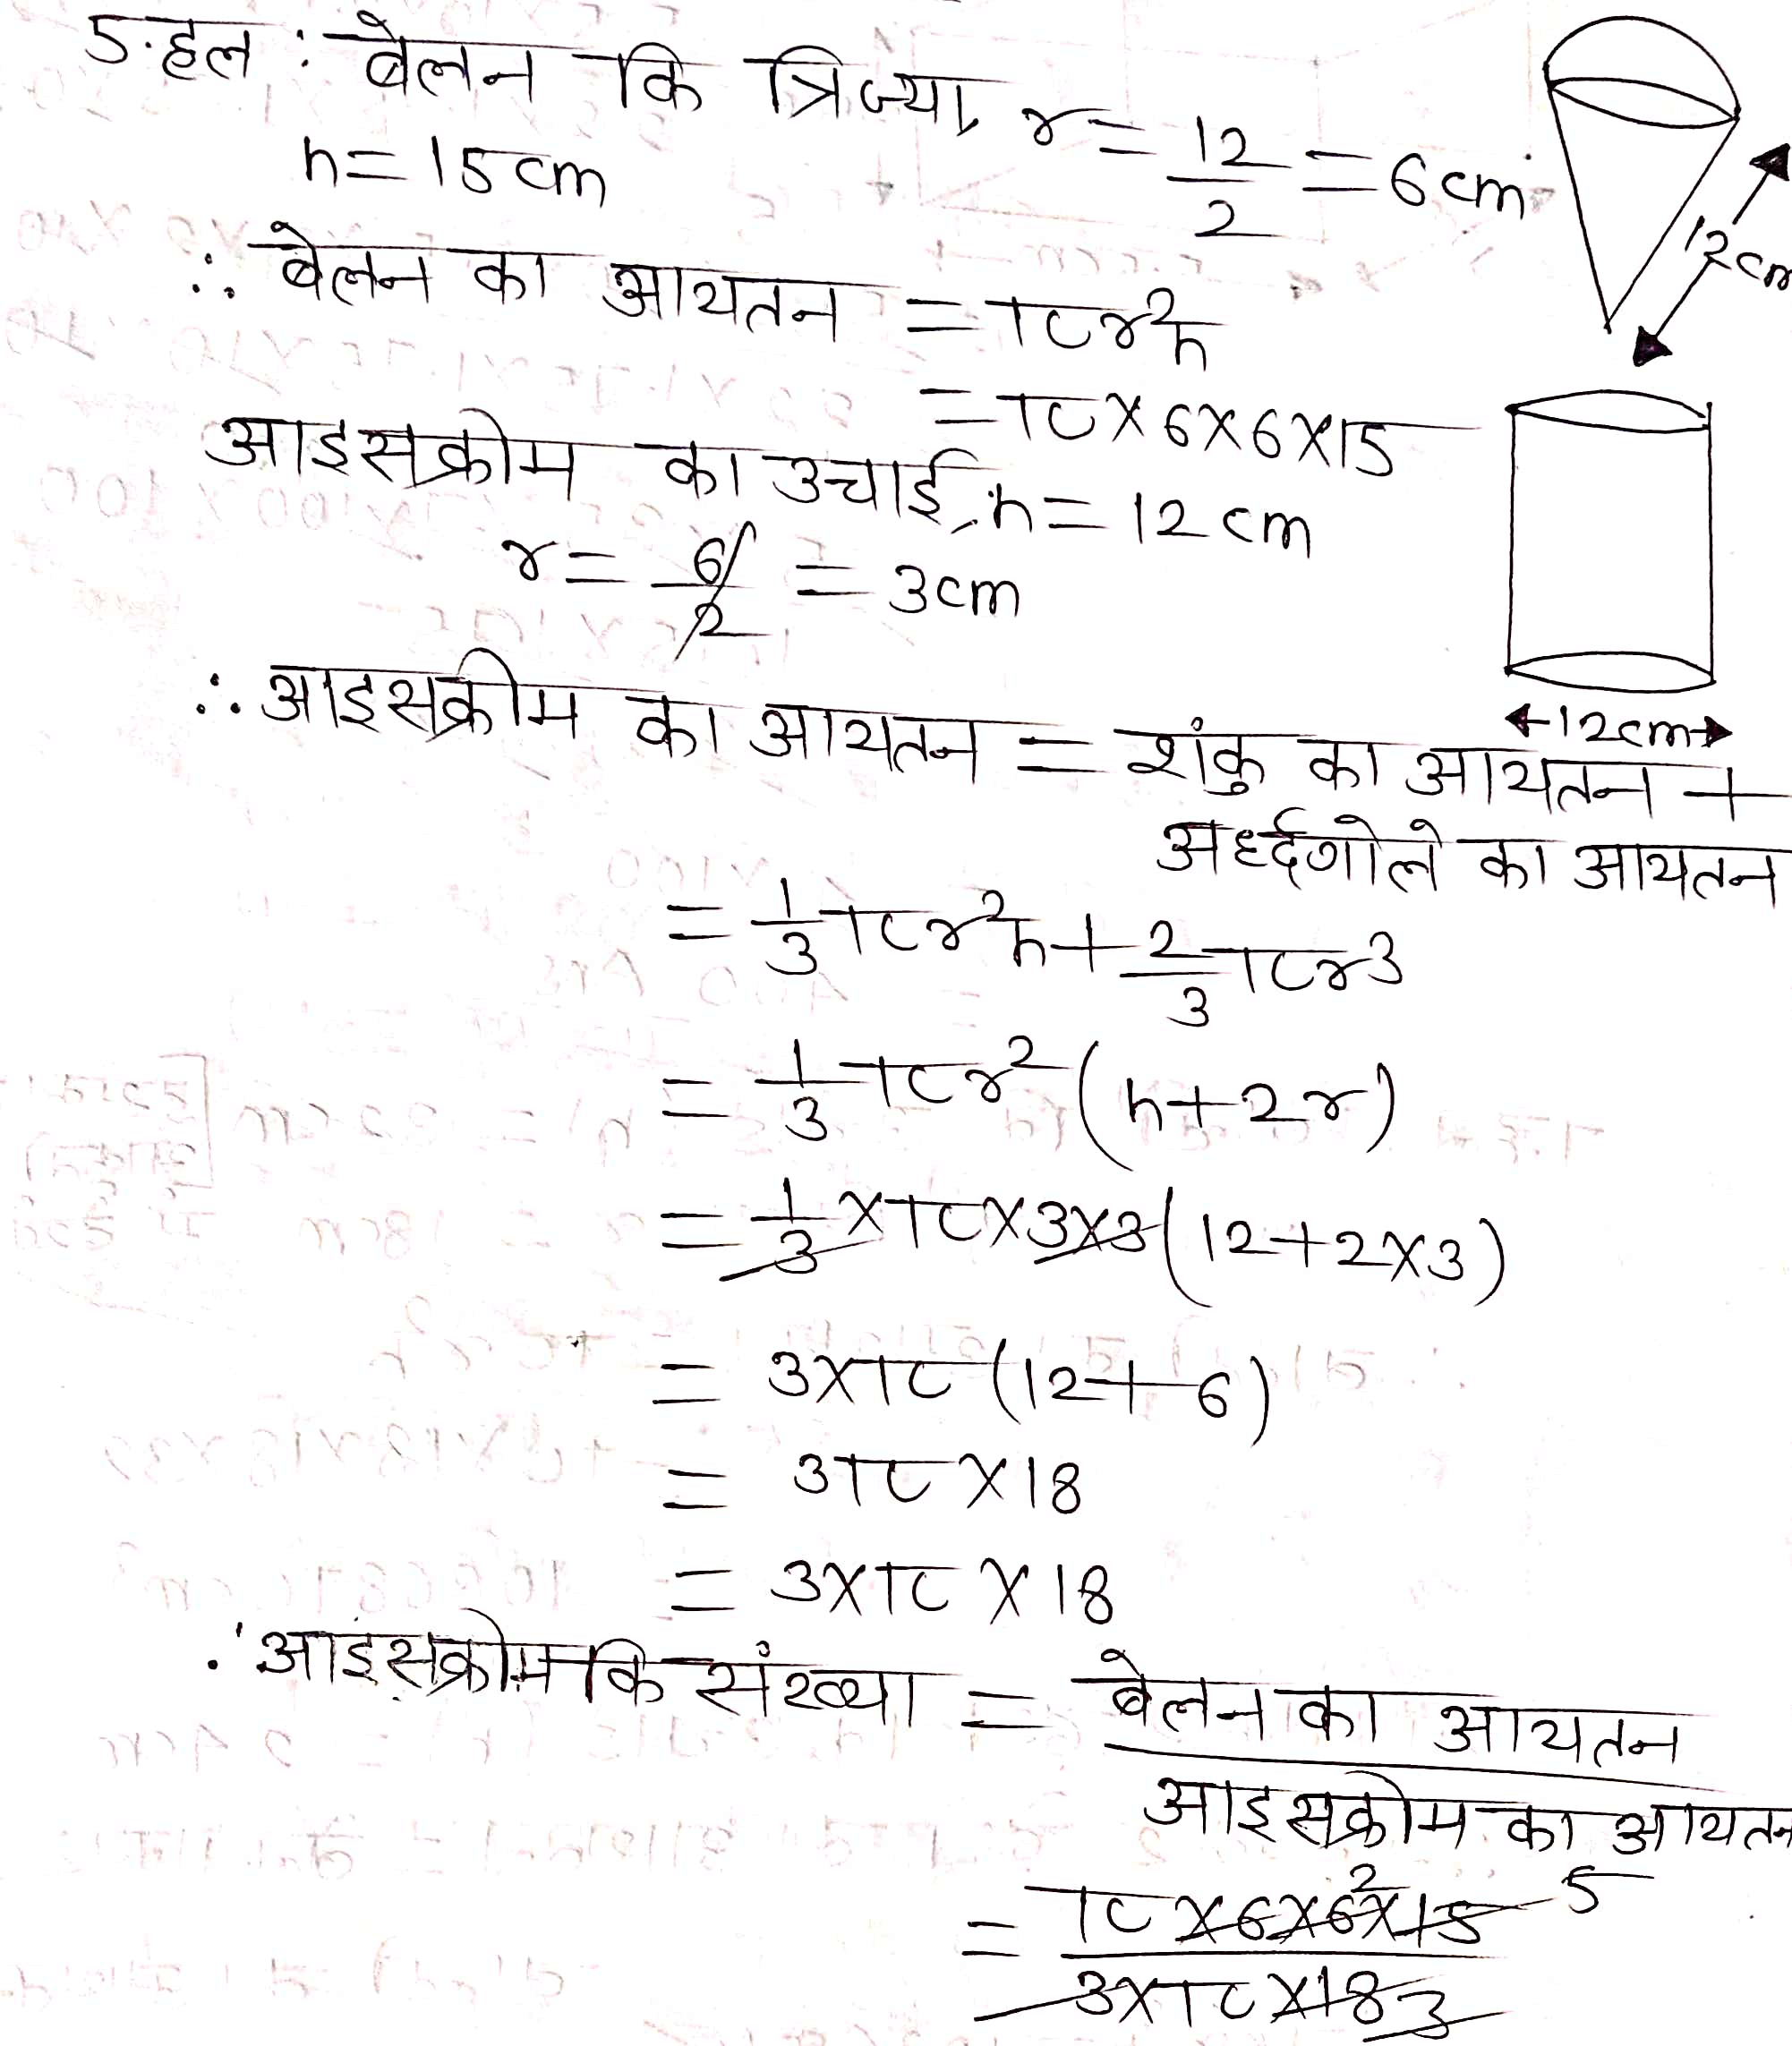 5. हल : बेलन कि त्रिज्या, r = 12/2 = 6 cm
h = 15 cm
12 cm
∴ बेलन का आयतन = πr²h
= π × 6 × 6 × 15
आइसक्रीम का उचाई, h = 12 cm
r = 6/2 = 3 cm
12 cm
∴ आइसक्रीम का आयतन = शंकु का आयतन +
अर्ध्दगोले का आयतन
= 1/3 πr²h + 2/3 πr³
= 1/3 πr² (h + 2r)
= 1/3 × π × 3 × 3 (12 + 2 × 3)
= 3 × π (12 + 6)
= 3π × 18
= 3 × π × 18
∴ आइसक्रीम कि संख्या = बेलन का आयतन
आइसक्रीम का आयतन
= π × 6 × 6 2 × 15 5
3 × π × 18 3